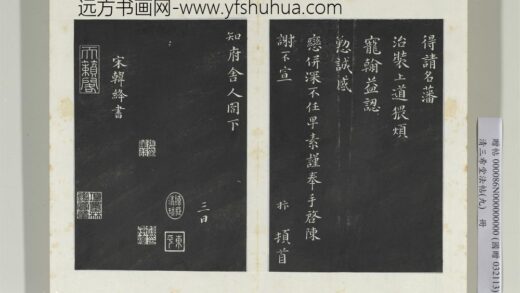 远方书画网-www.yfshuhua.com
得請名藩
治裝上道猥煩
寵翰益認
懃誠感
戀併深不任早素謹奉手啓陳
謝不宣
頓首
三日
知府舍人閤下
宋韓絳書
贈帖 000086N000000000 (國贈 032113)
清三希堂法帖(九) 冊